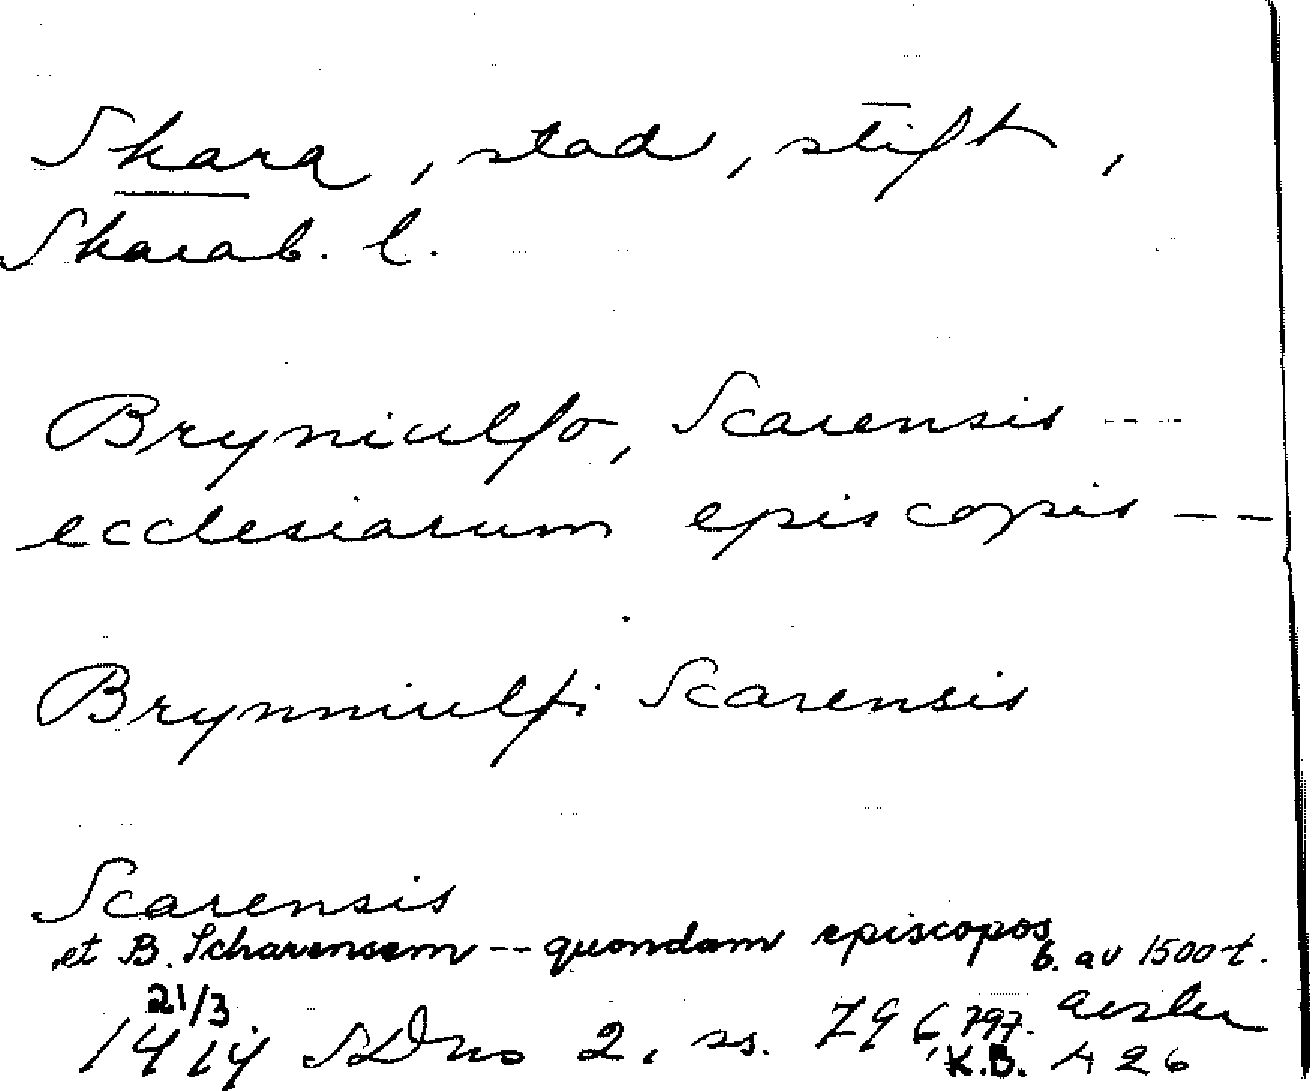 Skara, stad, stift,
Skarab. l.
Bryniulfo, Scarensis ---
ecclesiarum episcopis --
Brynniulfi Scarensis
Scarensis
et B. Scharensem -- quondam episcopos
b. av 1500-t.
21/3
1414 SD no 2, ss. 796, 797.
K.B. A 26